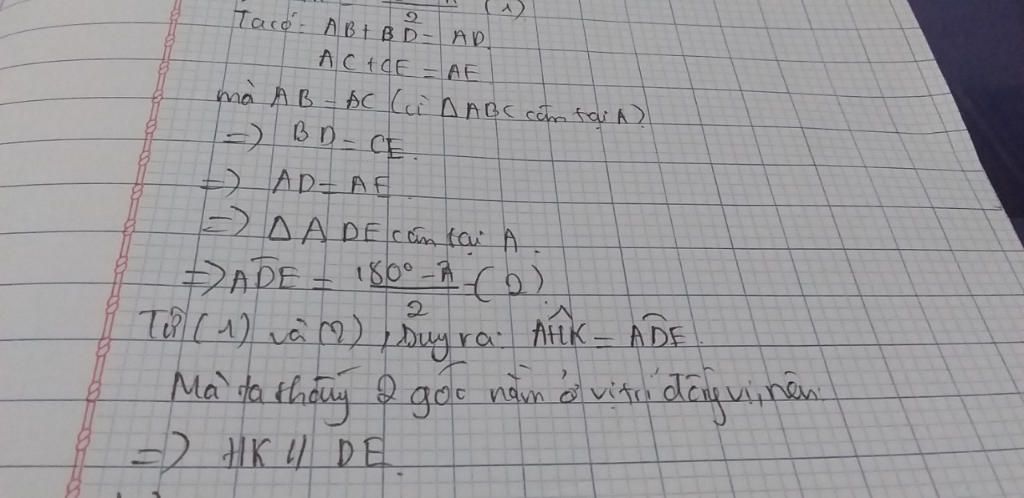 2 (1)
Ta có: AB + BD = AD
AC + CE = AE
mà AB = AC (vì Δ ABC cân tại A)
=> BD = CE.
=> AD = AE
=> Δ ADE cân tại A.
=> ADE = 180° - A / 2 (2)
Từ (1) và (2), suy ra: AHK = ADE.
Mà ta thấy 2 góc nằm ở vị trí đồng vị, nên.
=> HK // DE.